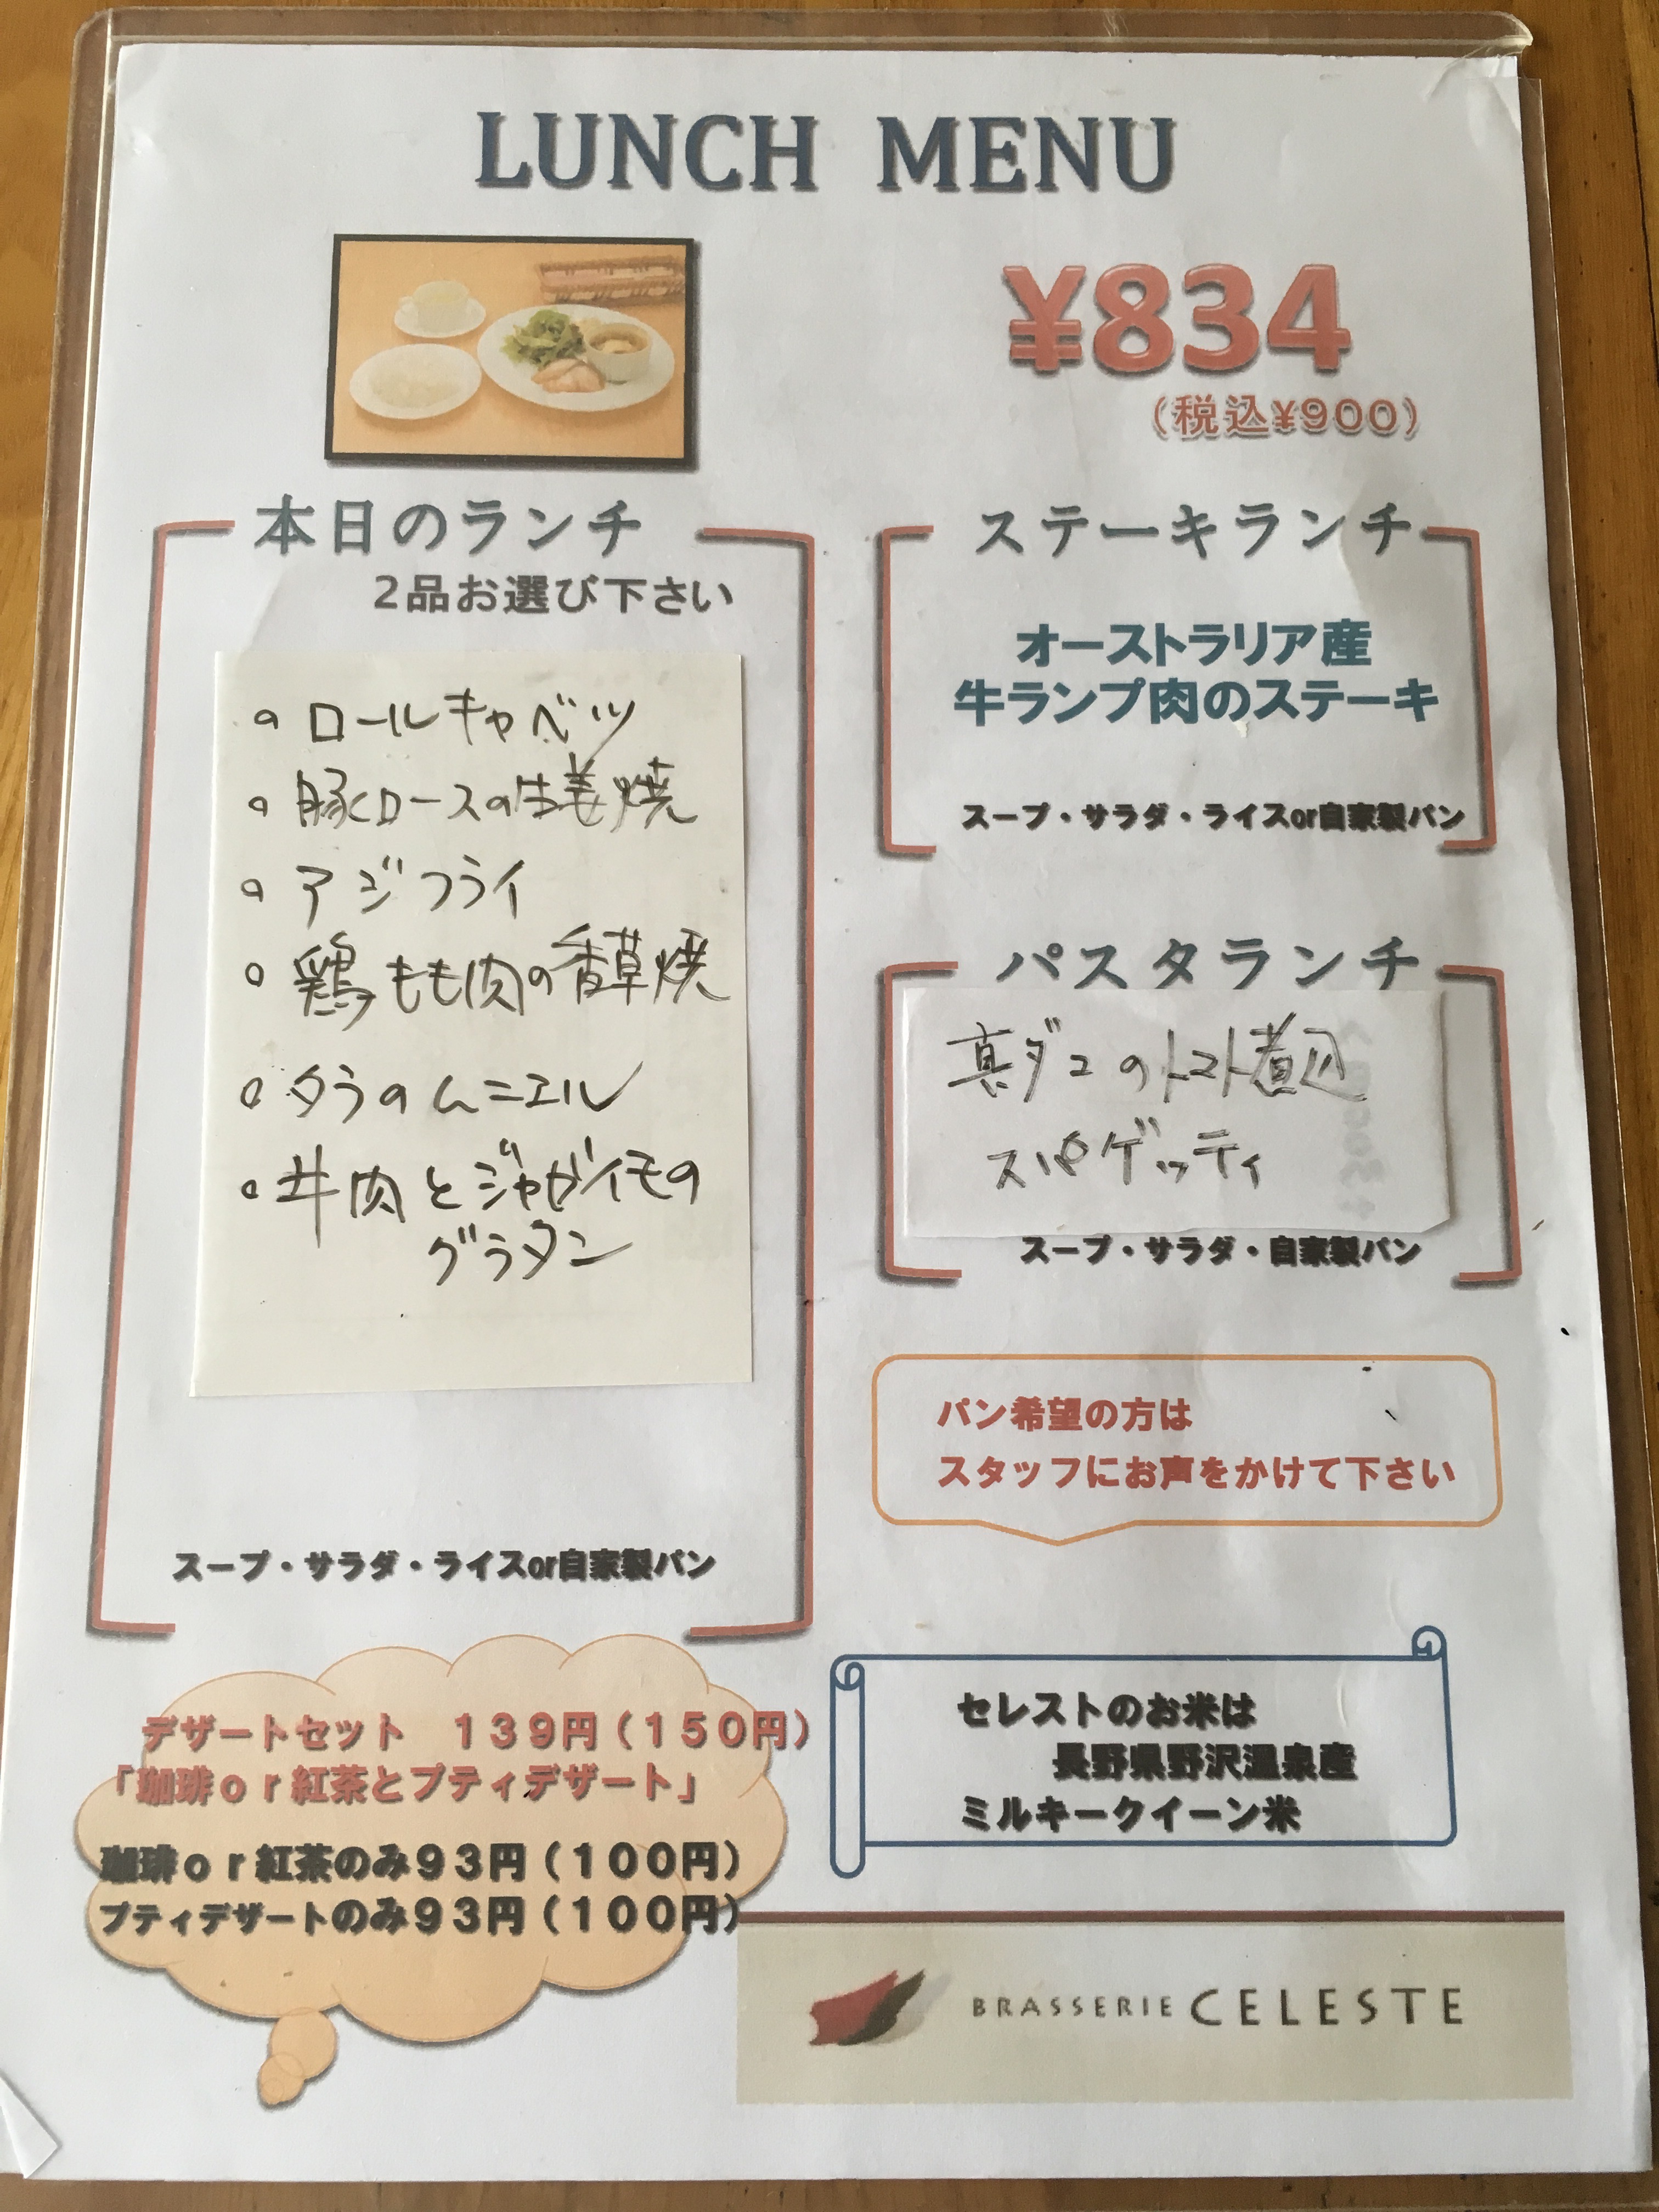 LUNCH MENU
¥834
(税込¥900)
本日のランチ
2品お選び下さい
ロールキャベツ
豚ロースの生姜焼
アジフライ
鶏もも肉の香草焼
タラのムニエル
牛肉とジャガイモの
グラタン
スープ・サラダ・ライスor自家製パン
ステーキランチ
オーストラリア産
牛ランプ肉のステーキ
スープ・サラダ・ライスor自家製パン
パスタランチ
真ダコのトマト煮込
スパゲッティ
スープ・サラダ・自家製パン
パン希望の方は
スタッフにお声をかけて下さい
デザートセット　139円（150円）
「珈琲or紅茶とプティデザート」
珈琲or紅茶のみ93円（100円）
プティデザートのみ93円（100円）
セレストのお米は
長野県野沢温泉産
ミルキークイーン米
BRASSERIE CELESTE